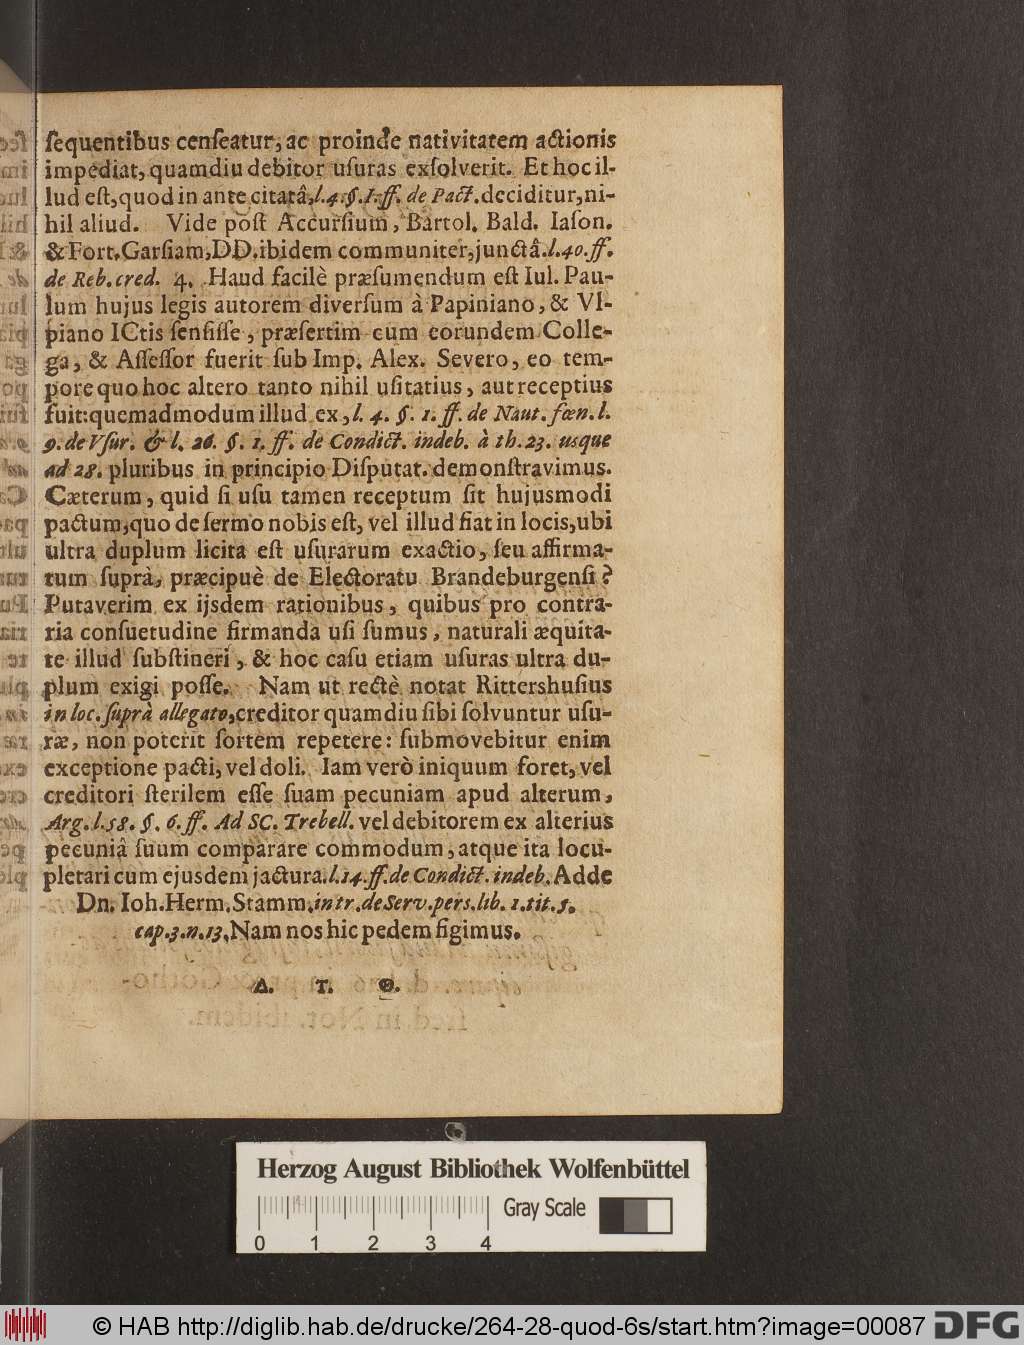 ſequentibus cenſeatur, ac proinde nativitatem actionis
impediat, quamdiu debitor uſuras exſolverit. Et hoc il-
lud eſt, quod in ante citatâ, l. 4. §. 1. ff. de Pact. deciditur, ni-
hil aliud. Vide poſt Accurſium, Bartol. Bald. Iaſon.
& Fort. Garſiam, DD. ibidem communiter, junctâ. l. 40. ff.
de Reb. cred. 4. Haud facilè præſumendum eſt Iul. Pau-
lum hujus legis autorem diverſum à Papiniano, & Vl-
piano ICtis ſenſiſſe, præſertim cum eorundem Colle-
ga, & Aſſeſſor fuerit ſub Imp. Alex. Severo, eo tem-
pore quo hoc altero tanto nihil uſitatius, aut receptius
fuit: quemadmodum illud ex, l. 4. §. 1. ff. de Naut. fœn. l.
9. de Vſur. & l. 26. §. 1. ff. de Condict. indeb. à th. 23. usque
ad 28. pluribus in principio Diſputat. demonſtravimus.
Cæterum, quid ſi uſu tamen receptum ſit hujusmodi
pactum, quo de ſermo nobis eſt, vel illud fiat in locis, ubi
ultra duplum licita eſt uſurarum exactio, ſeu affirma-
tum ſuprà, præcipuè de Electoratu Brandeburgenſi?
Putaverim ex ijsdem rationibus, quibus pro contra-
ria conſuetudine firmanda uſi ſumus, naturali æquita-
te illud ſubſtineri, & hoc caſu etiam uſuras ultra du-
plum exigi poſſe. Nam ut rectè notat Rittershuſius
in loc. ſuprà allegato, creditor quamdiu ſibi ſolvuntur uſu-
ræ, non poterit ſortem repetere: ſubmovebitur enim
exceptione pacti, vel doli. Iam verò iniquum foret, vel
creditori ſterilem eſſe ſuam pecuniam apud alterum,
Arg. l. 58. §. 6. ff. Ad SC. Trebell. vel debitorem ex alterius
pecuniâ ſuum comparare commodum, atque ita locu-
pletari cum ejusdem jactura. l. 14. ff. de Condict. indeb. Adde
Dn. Ioh. Herm. Stamm. in tr. de Serv. perſ. lib. 1. tit. 5.
cap. 3. n. 13. Nam nos hic pedem figimus.
Δ. T. Θ.
Herzog August Bibliothek Wolfenbüttel
Gray Scale
0 1 2 3 4
© HAB http://diglib.hab.de/drucke/264-28-quod-6s/start.htm?image=00087
DFG